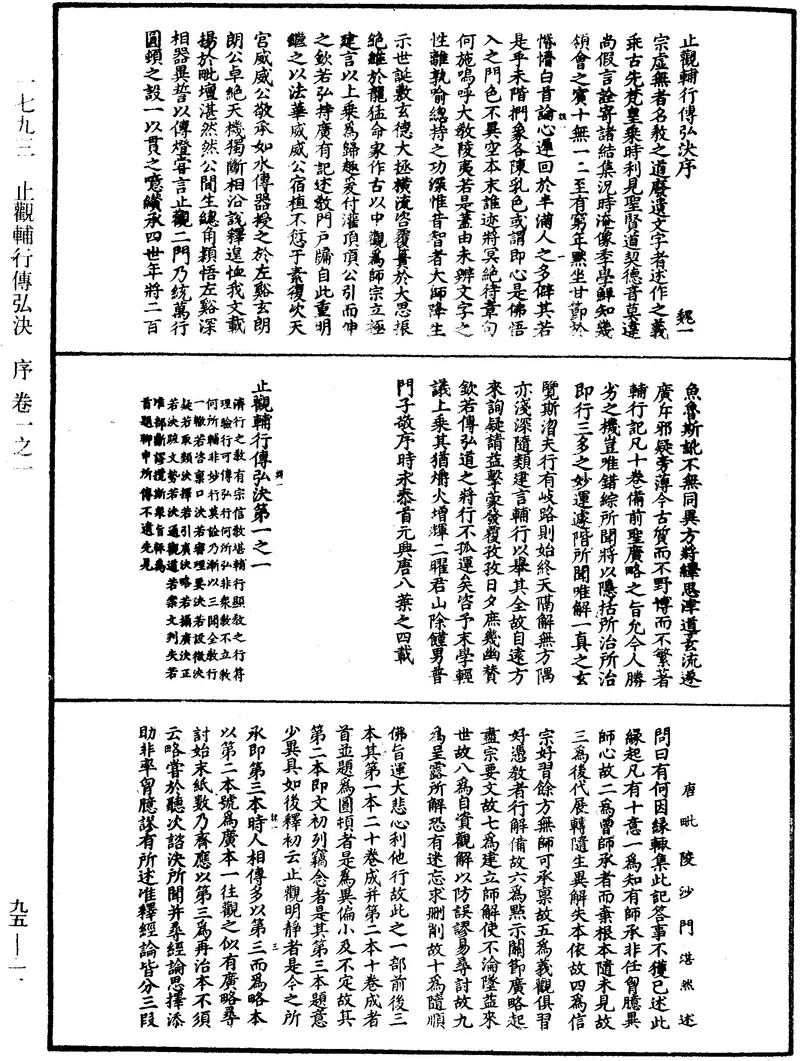 一七九三　止觀輔行傳弘決　序　卷一之一
九五—一
止觀輔行傳弘決序　魏一
宗虛無者名教之道廢遺文字者述作之義
乖古先梵皇乘時利見聖賢道契德音莫違
尚假言詮寄諸結集況時淹像季學鮮知幾
領會之賓十無一二至有窮年黙坐甘節於
惛懵白首論心遲迴於半滿人之多僻其若
是乎未階捫象各陳乳色或謂即心是佛悟
入之門色不異空本末誰迹將冥絕待章句
何施嗚呼大教陵夷若是蓋由未辨文字之
性離孰喻總持之功深惟昔智者大師降生
示世誕敷玄德大拯橫流咨覆簣於大思振
絕維於龍猛命家作古以中觀為師宗立極
建言以上乘為歸趣爰付灌頂頂公引而伸
之欽若弘持廣有記述教門戶牖自此重明
繼之以法華威威公宿植不愆于素復次天
宮威威公敬承如水傳器授之於左谿玄朗
朗公卓絕天機獨斷相沿說釋遑恤我文載
揚於毗壇湛然然公間生總角頴悟左谿深
相器異誓以傳燈嘗言止觀二門乃統萬行
圓頓之設一以貫之噫纘承四世年將二百
魚魯斯訛不無同異方將繹思津導玄流遂
廣斥邪疑旁薄今古質而不野博而不繁著
輔行記凡十卷備前聖廣略之旨允今人勝
劣之機豈唯錯綜所聞將以隱括所治所治
即行三多之妙運遽階所聞唯解一真之玄
覽斯湣夫行有歧路則始終天隔解無方隅
亦淺深隨類建言輔行以舉其全故自遠方
來詢疑請益擊蒙發覆孜孜日夕庶幾幽贊
欽若傳弘道之將行不孤運矣咨予末學輕
議上乘其猶爝火增輝二曜君山除饉男普
門子敬序時永泰首元興唐八葉之四載
止觀輔行傳弘決第一之一
濟行之教有宗信教堪輔行顯教之行符
理驗行可傳弘行何所弘非衆教不立教
何所輔非妙行莫詮乃漸以三開全教行
一轍若咨稟口決若審理要決若設徵決
疑若取類決擇若引廣決略若攝廣決正
若決斑文勢若決通觀道若崇文列失若
唯部斷謬攬斯衆旨咸為
首題聊申所傳不遺先見
唐毗陵沙門湛然述
問曰有何因緣輙集此記答事不獲已述此
緣起凡有十意一為知有師承非任胷臆異
師心故二為曾師承者而棄根本隨末見故
三為後代展轉隨生異解失本依故四為信
宗好習餘方無師可承禀故五為義觀俱習
好憑教者行解備故六為點示關節廣略起
盡宗要文故七為建立師解使不淪墜益來
世故八為自資觀解以防誤謬易尋討故九
為呈露所解恐有迷忘求删削故十為隨順
佛旨運大悲心利他行故此之一部前後三
本其第一本二十卷成并第二本十卷成者
首並題為圓頓者是為異偏小及不定故其
第二本即文初列竊念者是其第三本題意
少異具如後釋初云止觀明靜者是今之所
承即第三本時人相傳多以第三而為略本
以第二本號為廣本一往觀之似有廣略尋
討始末紙數乃齊應以第三為再治本不須
云略嘗於聽次諮決所聞并尋經論思擇添
助非率胷臆謬有所述准釋經論皆分三段